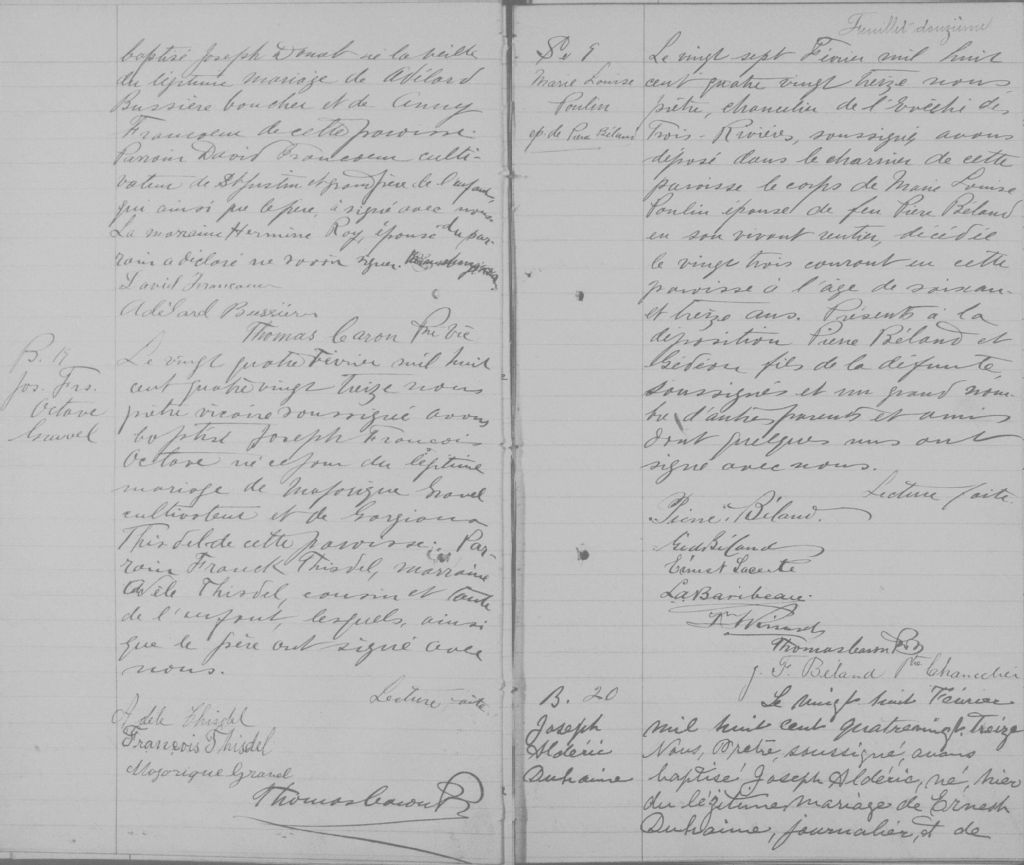 baptisé Joseph Donat né la veille
du légitime mariage de Adélard
Bussière boucher et de Anny
Francoeur de cette paroisse.
Parrain David Francoeur culti-
vateur de St Justin et grand père de l'enfant,
qui ainsi que le père, a signé avec nous.
La marraine Hermine Roy, épouse du par-
rain a déclaré ne savoir signer.
David Francoeur
Adélard Bussière
Thomas Caron Ptre Vic
B. 19
Jos. Frs.
Octave
Gravel
Le vingt quatre Février mil huit
cent quatre vingt treize nous
prêtre vicaire soussigné avons
baptisé Joseph Francois
Octave né ce jour du légitime
mariage de Majorique Gravel
cultivateur et de Georgiana
Thisdel de cette paroisse. Par-
rain Franck Thisdel, marraine
Adèle Thisdel, cousin et tante
de l'enfant, lesquels, ainsi
que le père ont signé avec
nous.
Lecture faite.
Adele Thisdel
François Thisdel
Majorique Gravel
Thomas Caron Ptre
Feuillet douzième
S. 9
Marie Louise
Poulin
ép. de Pierre Béland
Le vingt sept Février mil huit
cent quatre vingt treize nous,
prêtre, chancelier de l'Evêché des
Trois-Rivières, soussigné, avons
déposé dans le charnier de cette
paroisse le corps de Marie Louise
Poulin épouse de feu Pierre Béland
en son vivant rentier, décédée
le vingt trois courant en cette
paroisse à l'âge de soixan-
et treize ans. Présents à la
déposition Pierre Béland et
Gédéon fils de la défunte,
soussignés et un grand nom-
bre d'autres parents et amis
dont quelques uns ont
signé avec nous.
Lecture faite.
Pierre Béland.
Ged Béland
Ernest Lacerte
L. A. Baribeau.
Thomas Caron Ptre
J. F. Béland Ptre Chancelier
B. 20
Joseph
Aldéric
Duhaime
Le vingt huit Février
mil huit cent quatrevingt-Treize
Nous, Prêtre, soussigné, avons
baptisé Joseph Aldéric, né, hier
du légitime mariage de Ernest
Duhaime, journalier, et de